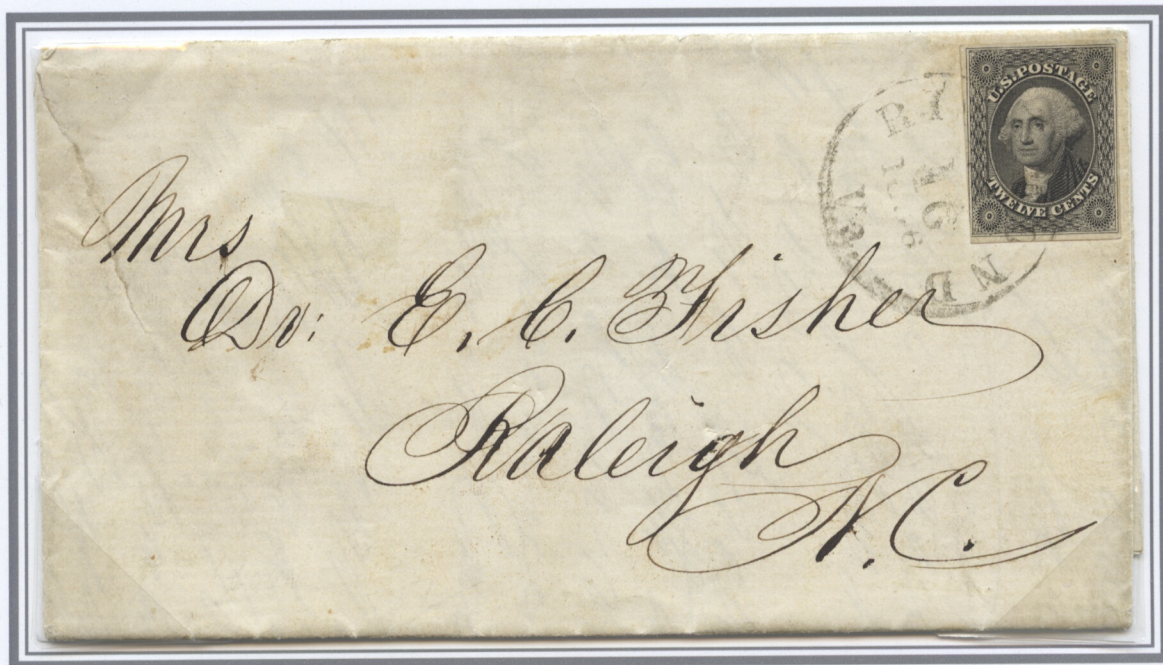 U.S. POSTAGE
TWELVE CENTS
Mrs
Dr: E. C. Fisher
Raleigh
N.C.